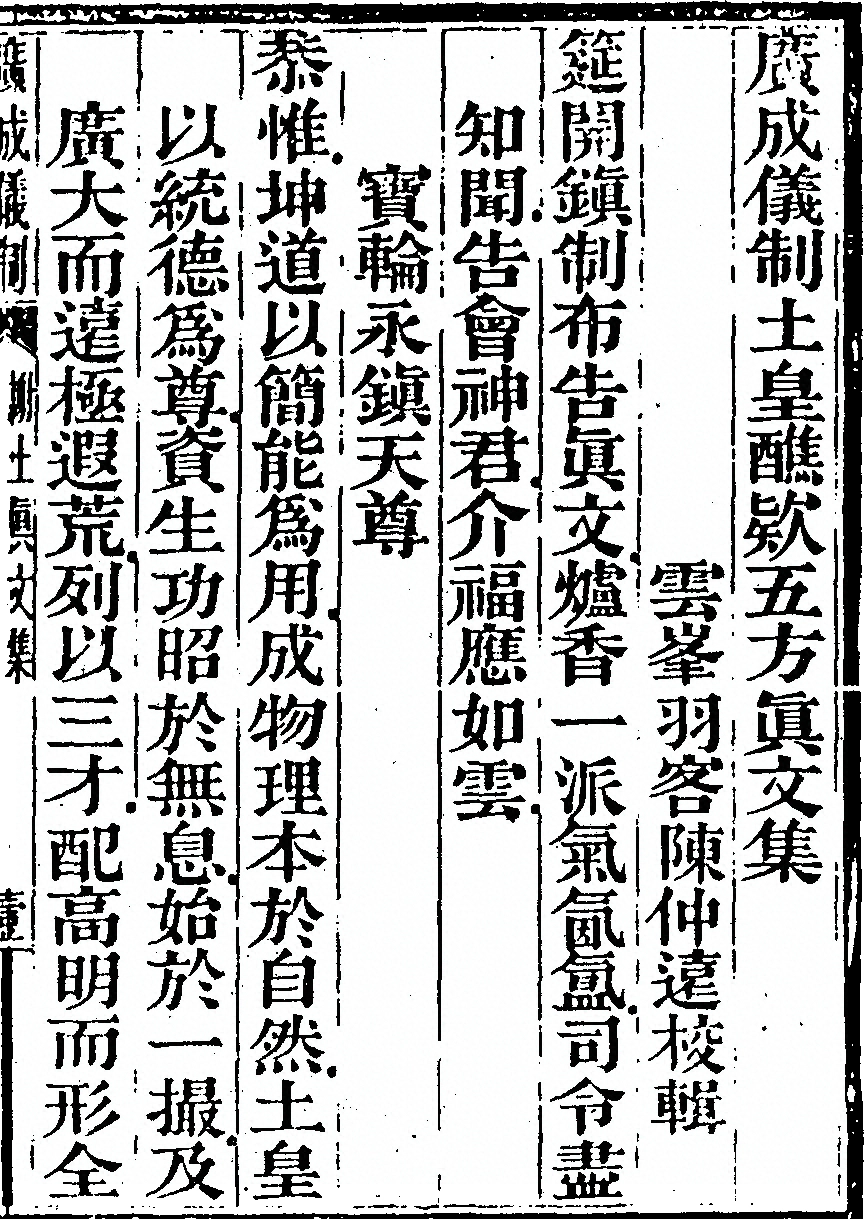 廣成儀制土皇醮欵五方眞文集
雲峯羽客陳仲遠校輯
筵開鎭制布告眞文爐香一派氣氤氳司令盡
知聞告會神君介福應如雲
寶輪永鎭天尊
恭惟坤道以簡能爲用成物理本於自然土皇
以統德爲尊資生功昭於無息始於一撮及
廣大而遠極遐荒列以三才配高明而形全
廣成儀制 土眞文集 壹